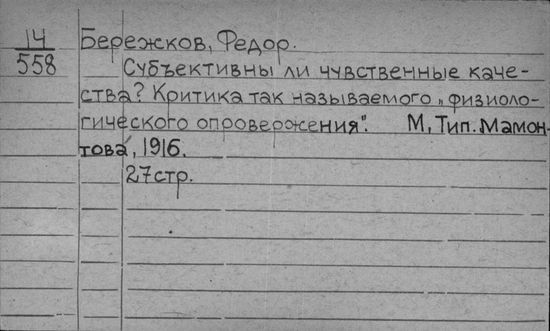 14 Бережков, Федор.
558 Субъективны ли чувственные каче-
ства? Критика так называемого „физиоло-
гического опровержения". М, Тип. Мамон-
това, 1916.
27 стр.